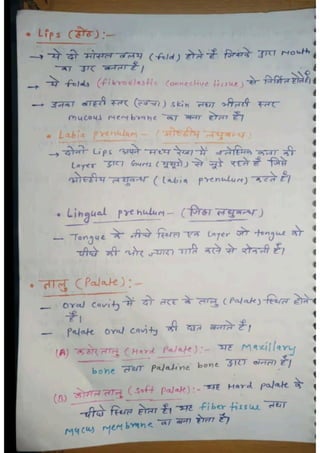 • Lips (होठ):-
→ ये दो मांसल वलय (fold) होते हैं जिनके द्वारा Mouth
का द्वार बनता है।
→ ये folds (fibroelastic connective tissue) से निर्मित होते हैं।
→ उनका बाहरी स्तर (त्वचा) Skin तथा भीतरी स्तर
mucous Membrane का बना होता है।
• Labia prenulum - (ओष्ठीय लघुबन्ध)
→ दोनों Lips अपने मध्य रेखा में श्लेष्मिक कला की
Layer द्वारा Gums (मसूड़ो) से जुड़े रहते हैं जिसे
ओष्ठीय लघुबन्ध (Labia prenulum) कहते हैं।
• Lingual prenulum - (जिह्वा लघुबन्ध)
- Tongue के नीचे स्थित एक Layer जो tongue को
पीछे की ओर ज्यादा गति करने से रोकती हैं।
• तालु (Palate):-
- Oral cavity में दो तरह के तालु (Palate) स्थित होते
हैं।
- Palate oral cavity की छत बनाते हैं।
(A) कठोर तालु (Hard Palate):- यह Maxillary
bone तथा Palatine bone द्वारा बनता है।
(B) कोमल तालु (Soft Palate):- यह Hard palate के
पीछे स्थित होता हैं। यह fiber tissue तथा
Mucus Membrane का बना होता हैं।